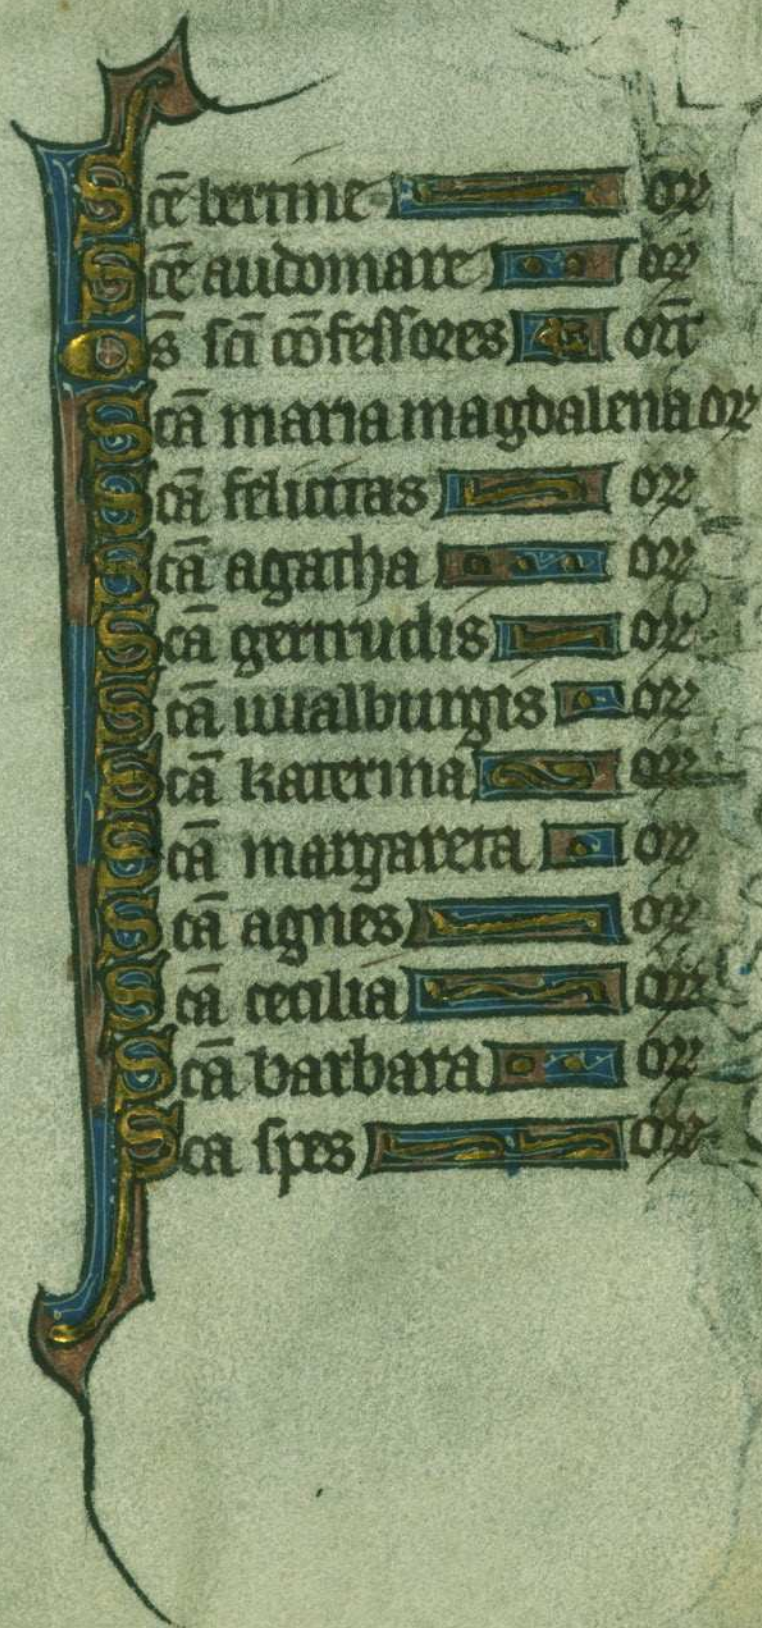 Sc̄e bertine or
Sc̄e audomare or
Os̄ sc̄i cōfessores or̄t
Sc̄a maria magdalena or
Sc̄a felicitas or
Sc̄a agatha or
Sc̄a gertrudis or
Sc̄a uualburgis or
Sc̄a katerina or
Sc̄a margareta or
Sc̄a agnes or
Sc̄a cecilia or
Sc̄a barbara or
Sca spes or